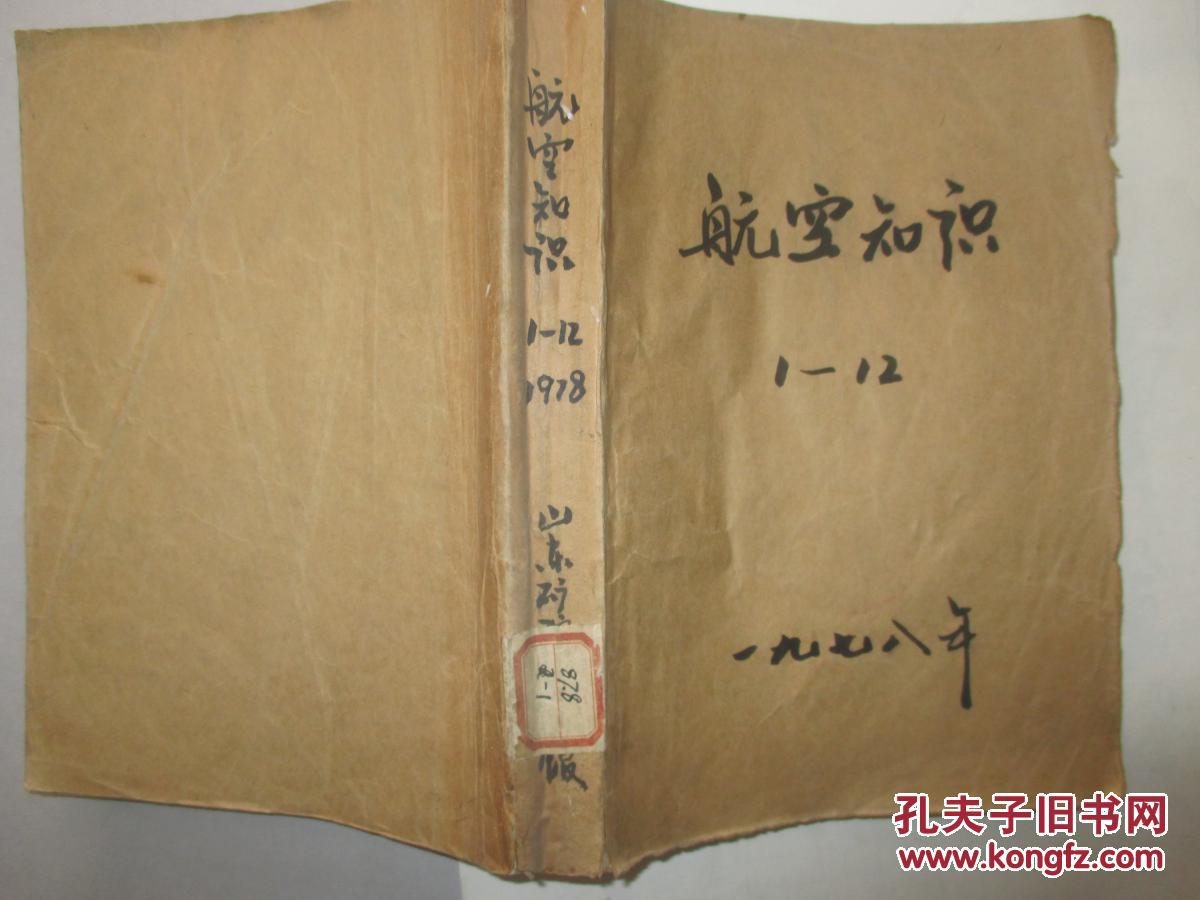 航空知识
1-12
1978
山东矿
87.8
2-1
航空知识
1-12
一九七八年
孔夫子旧书网
www.kongfz.com